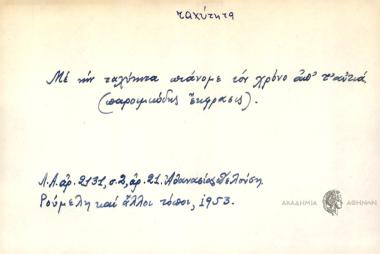 ταχύτητα
Μὲ τὴν ταχύτητα πιάνομε τὸν χρόνο ἀπ' τ' αὐτιά
(παροιμιώδης ἔκφρασις).
Λ.Α. ἀρ. 2131, σ. 2, ἀρ. 21. Ἀθανασίας
Ρούμελη καὶ ἄλλοι τόποι, 1953.
ΑΚΑΔΗΜΙΑ ΑΘΗΝΩΝ